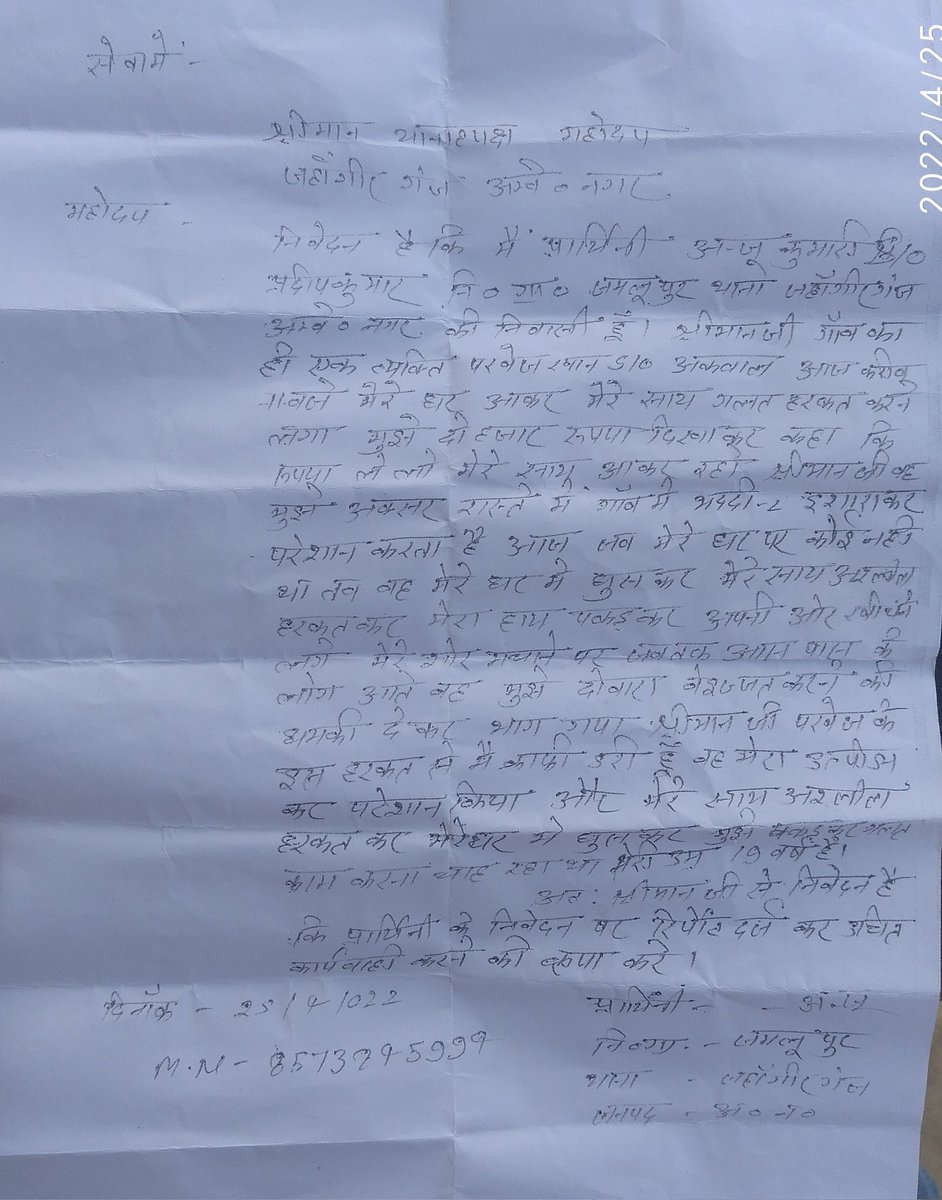 2022/4/25
सेवामें -
श्रीमान थानाध्यक्ष महोदय
जहाँगीर गंज अम्बे० नगर
महोदय -
निवेदन है कि मैं प्रार्थिनी अन्जू कुमारी D/०
प्रदीपकुमार नि० ग्रा० जमलूपुर थाना जहाँगीरगंज
अम्बे० नगर की निवासी हूँ। श्रीमानजी गाँव का
ही एक व्यक्ति परवेज खान S/० अकबाल आज करीब
11बजे मेरे घर आकर मेरे साथ गलत हरकत करने
लगा मुझे दो हजार रूपया दिखाकर कहा कि
रूपया ले लो मेरे साथ आकर रहो श्रीमान जी वह
मुझे अक्सर रास्ते में गाँव में भद्दी-2 इशाराकर
परेशान करता है आज जब मेरे घर पर कोई नही
था तब वह मेरे घर मे घुस कर मेरे साथ अश्लील
हरकत कर मेरा हाथ पकड़ कर अपनी ओर खीचने
लगे मेरे शोर मचाने पर जबतक आस पास के
लोग आते वह मुझे दोबारा बेइज्जत करने की
धमकी दे कर भाग गया श्रीमान जी परवेज के
इस हरकत से मैं काफी डरी हूँ वह मेरा उत्पीड़न
कर परेशान किया और मेरे साथ अश्लील
हरकत कर मेरेघर मे घुसकर मुझे पकड़कर गलत
काम करना चाह रहा था मेरा उम्र 19 वर्ष है।
अतः श्रीमान जी से निवेदन है
कि प्रार्थिनी के निवेदन पर रिर्पोट दर्ज कर उचित
कार्यवाही करने की कृपा करे।
दिनाँक - 25/4/022
M.N - 8573795999
प्रार्थिनी - - अन्जू
नि०ग्रा० - जमलूपुर
थाना - जहाँगीरगंज
जनपद - अ० न०